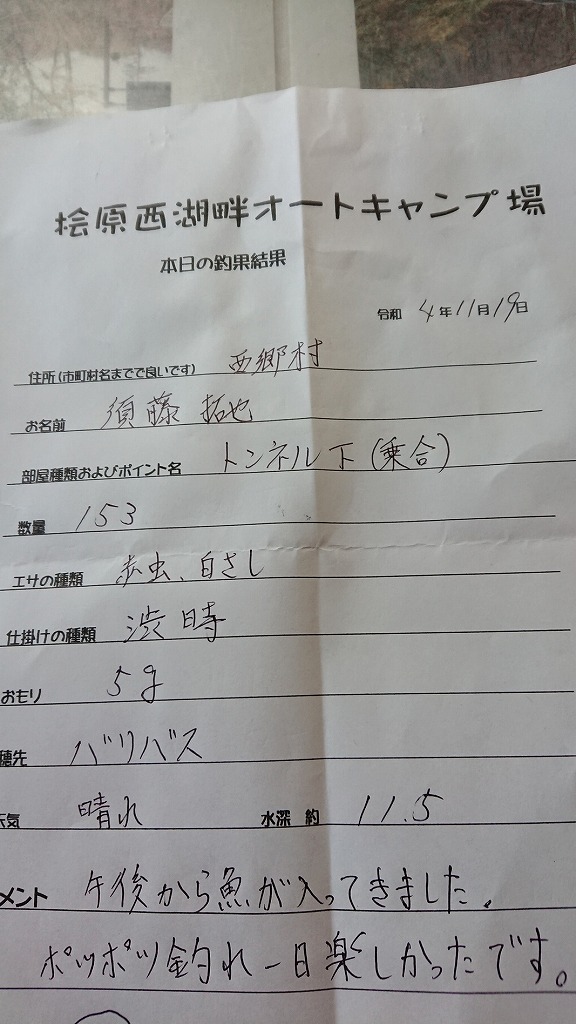 桧原西湖畔オートキャンプ場
本日の釣果結果
令和 4年11月19日
住所(市町村名までで良いです) 西郷村
お名前 須藤 拓也
部屋種類およびポイント名 トンネル下(乗合)
数量 153
エサの種類 赤虫、白さし
仕掛けの種類 渋時
おもり 5g
穂先 バリバス
天気 晴れ 水深 約 11.5
メント 午後から魚が入ってきました。
ポツポツ釣れ一日楽しかったです。